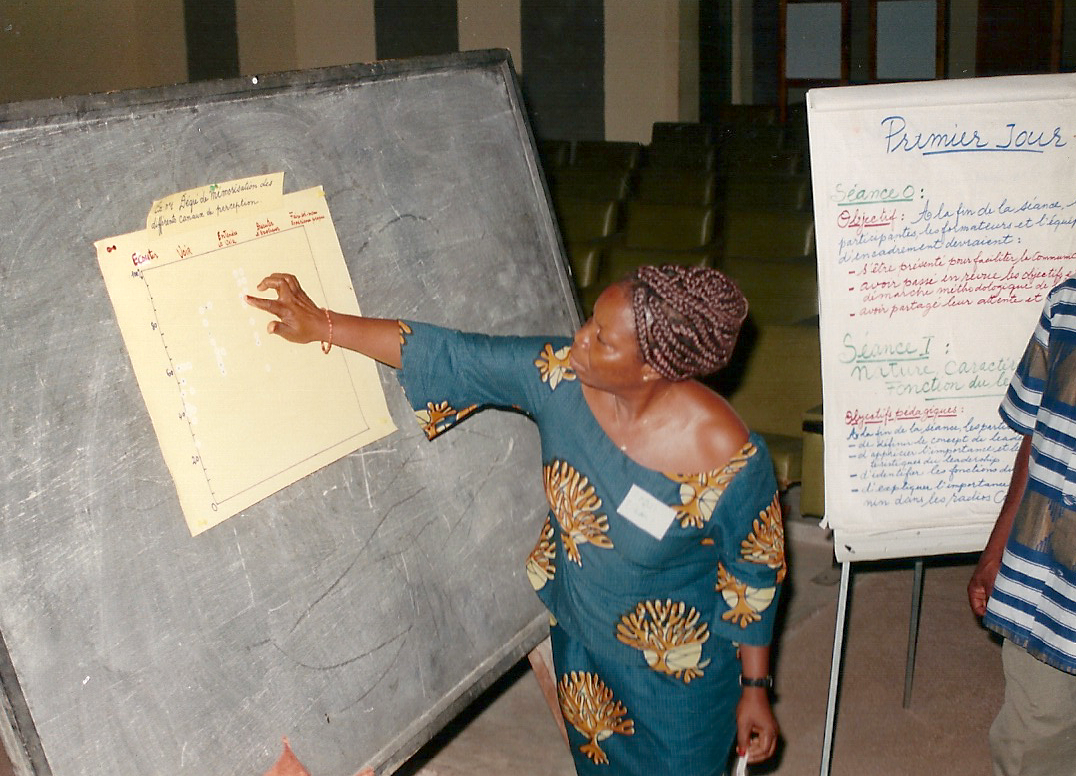 Degré de Mémorisation des
différents canaux de perception
Ecouter
Voir
Entendre
et Voir
100
80
60
40
20
0
Premier Jour
Séance 0 :
Objectif : A la fin de la séance,
participantes, les formateurs et l'équip
d'encadrement devraient :
- s'être présenté pour faciliter la communi
- avoir passé en revue les objectifs
démarche méthodologique de
- avoir partagé leur attente et
Séance I :
Nature, Caractér
Fonction du le
Objectifs pédagogiques :
A la fin de la séance, les parti
- de définir le concept de lead
- d'apprécier l'importance et le
téristiques du leadership
- d'identifier les fonctions du
- d'expliquer l'importance
nin dans les radios C